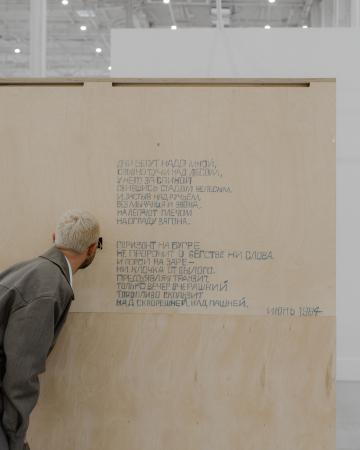 ДНИ БЕГУТ НАДО МНОЙ,
СЛОВНО ТУЧИ НАД ЛЕСОМ,
У НЕГО ЗА СПИНОЙ
СБИВШИСЬ СТАДОМ БЕЛЕСЫМ.
И, ЗАСТЫВ НАД РУЧЬЕМ,
БЕЗ МЫЧАНЬЯ И ЗВОНА,
НАЛЕГАЮТ ПЛЕЧОМ
НА ОГРАДУ ЗАГОНА.
ГОРИЗОНТ НА БУГРЕ
НЕ ПРОРОНИТ О БЕГСТВЕ НИ СЛОВА.
И ПОРОЙ НА ЗАРЕ –
НИ КЛОЧКА ОТ БЫЛОГО.
ПРЕДЪЯВЛЯЯ ТРАНЗИТ,
ТОЛЬКО ВЕЧЕР ВЧЕРАШНИЙ
ТОРОПЛИВО СКОЛЬЗИТ
НАД СКВОРЕШНЕЙ, НАД ПАШНЕЙ.
ИЮНЬ 1964